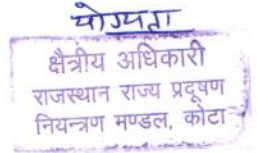 योग्यता
क्षेत्रीय अधिकारी
राजस्थान राज्य प्रदूषण
नियन्त्रण मण्डल, कोटा